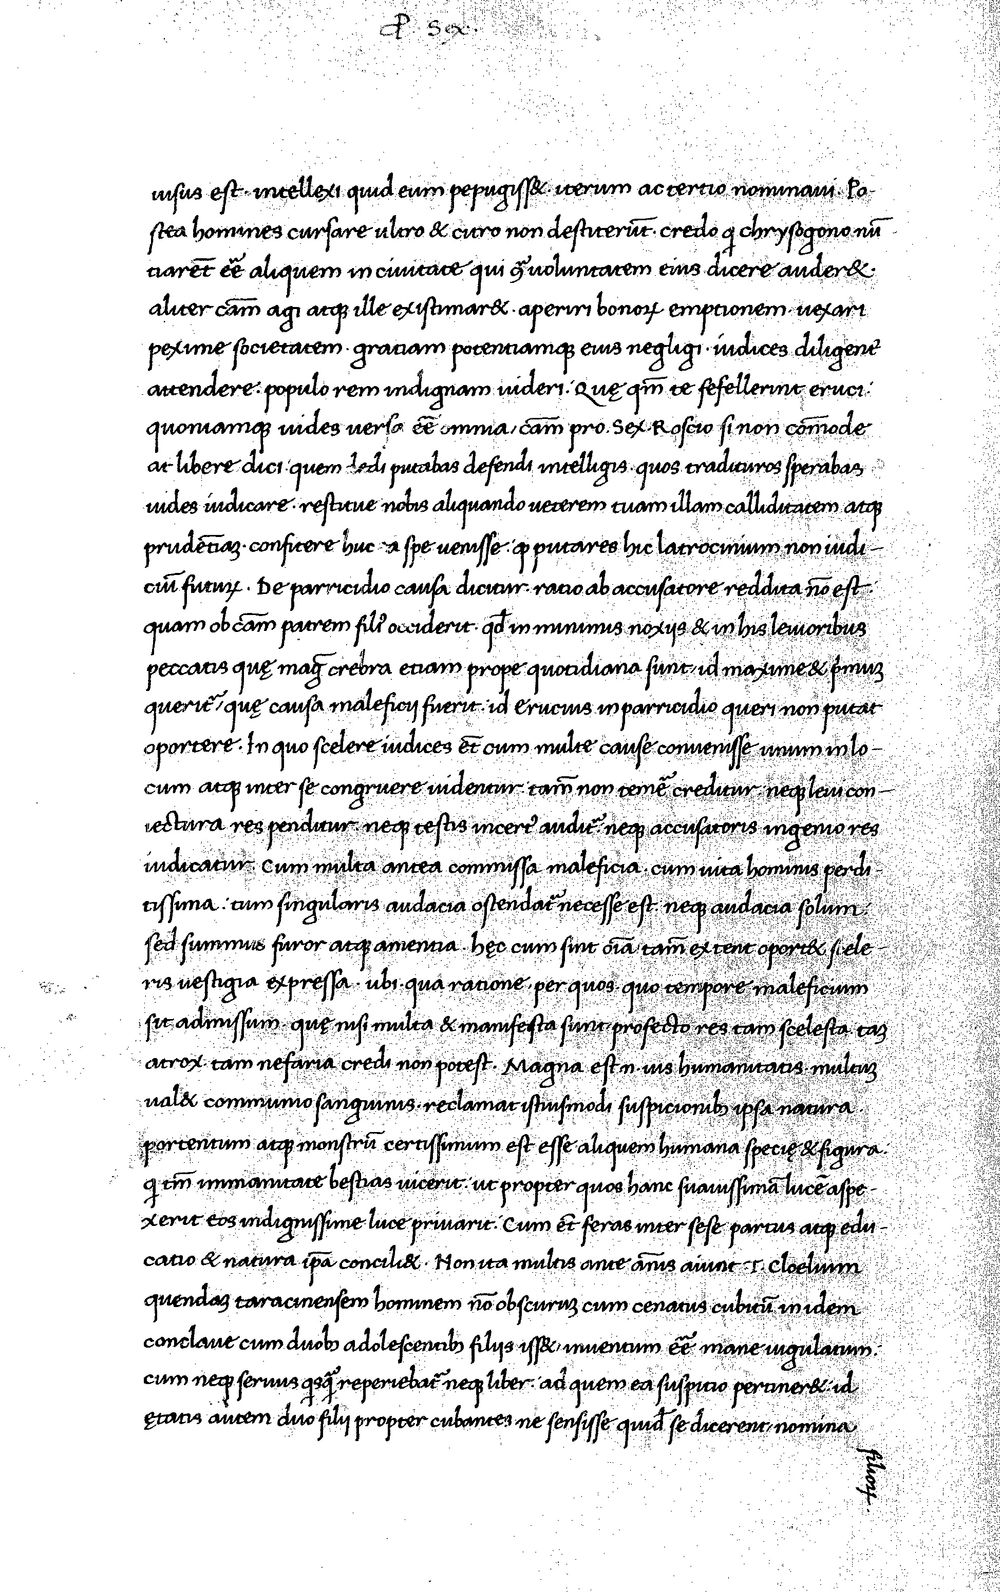 P. Sex.
uisus est. intellexi quid eum pepugiss&. iterum ac tertio nominaui. Po-
stea homines cursare ultro & citro non destiterūt. credo q̨ chrysogono nū
tiarēt eē̄ aliquem in ciuitate qui ꝯ̄ uoluntatem eius dicere auder&.
aliter cām̄ agi atqꝫ ille existimar&. aperiri bonoꝝ emptionem. uexari
pexime societatem. gratiam potentiamqꝫ eius negligi. iudices diligent᷑
attendere. populo rem indignam uideri. Quę qm̄ te fefellerint eruci.
quoniamqꝫ uides uersa eē̄ omnia, cām̄ pro. Sex. Roscio si non cōmode
at libere dici. quem dedi putabas defendi intelligis. quos tradituros sperabas
uides iudicare. restitue nobis aliquando ueterem tuam illam calliditatem atqꝫ
prudētiaꝫ. confitere huc ea spe uenisse. ꝙ putares hic latrocinium non iudi-
ciū futuꝝ. De parricidio causa dicitur. ratio ab accusatore reddita nō est
quam ob cām̄ patrem fili᷑ occiderit. qd̄ in minimis noxiis & in his leuioribus
peccatis quę maḡ crebra etiam prope quotidiana sunt, id maxime & p̄muꝫ
querit᷑, quę causa maleficij fuerit. id Erucius in parricidio queri non putat
oportere. In quo scelere iudices ēt cum multe cause conuenisse unum in lo-
cum atqꝫ inter se congruere uidentur. tam̄ non teme᷑ creditur. neqꝫ leui con-
iectura res penditur. neqꝫ testis incert᷑ audit᷑. neqꝫ accusatoris ingenio res
iudicatur. Cum multa antea commissa maleficia. cum uita hominis perdi-
tissima. tum singularis audacia ostendat᷑ necesse est. neqꝫ audacia solum.
sed summus furor atqꝫ amentia. hęc cum sint oīa tam̄ extent oport& scele-
ris uestigia expressa. ubi. qua ratione. per quos. quo tempore maleficium
sit admissum. quę nisi multa & manifesta sunt profecto res tam scelesta. taꝫ
atrox. tam nefaria credi non potest. Magna est.n. uis humanitatis. multuꝫ
ual& communio sanguinis. reclamat istiusmodi suspicionibꝫ ipsa natura.
portentum atqꝫ monstrū certissimum est esse aliquem humana specię & figura.
q̨ tm̄ immanitate bestias uicerit. ut propter quos hanc suauissimā lucē aspe-
xerit eos indignissime luce priuarit. Cum ēt feras inter sese partus atqꝫ edu-
catio & natura ip̄a concili&. Non ita multis ante ān̄is aiunt. T. Cloelium
quendaꝫ taracinensem hominem nō obscuruꝫ cum cenatus cubitū in idem
conclaue cum duobꝫ adolescentibꝫ filijs iss&, inuentum eē̄ mane iugulatum.
cum neqꝫ seruus q̨sq̄ reperiebat᷑ neqꝫ liber. ad quem ea suspitio pertiner&. id
ętatis autem duo filij propter cubantes ne sensisse quid̄ se dicerent, nomina
filioꝝ.